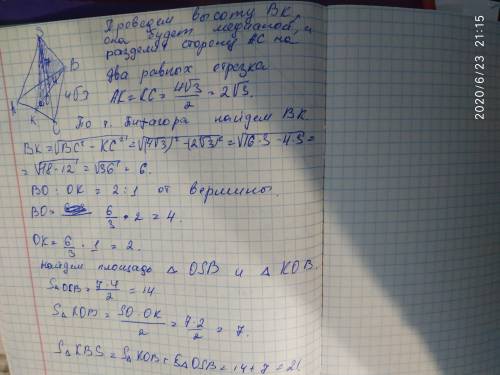 Проведем высоту BK,
она будет медианой, и
разделит сторону AC на
два равных отрезка
AK = KC = 4√3/2 = 2√3.
По т. Пифагора найдем BK
BK = √BC² - KC² = √(4√3)² - (2√3)² = √16·3 - 4·3 =
= √48 - 12 = √36 = 6.
BO : OK = 2:1 от вершины.
BO = 6/3 · 2 = 4.
OK = 6/3 · 1 = 2.
Найдем площадь △ OSB и △ KOB.
S△OSB = 7·4/2 = 14
S△KOB = SO·OK/2 = 7·2/2 = 7.
S△KBS = S△KOB + S△OSB = 14 + 7 = 21
S
B
4√3
A
K
C
O
2020/6/23 21:15